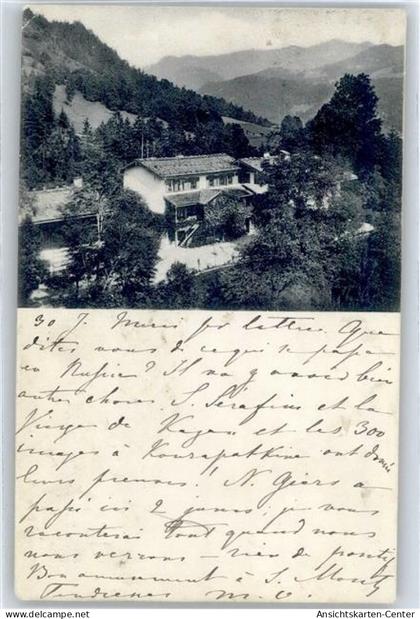 30 J. Merci pr lettre. Que
dites vous de ce qui se passe
en Russie? Il va y avoir bien
autre chose. S. Serafin et la
Vierge de Kazan et les 300
images à Kourapatkine ont donné
leurs preuves! N. Giers a
passé ici 2 jours, je vous
raconterai tout quand nous
nous verrons - rien de
Bon amusement à S. Moritz
Tendresses
Ansichtskarten-Center